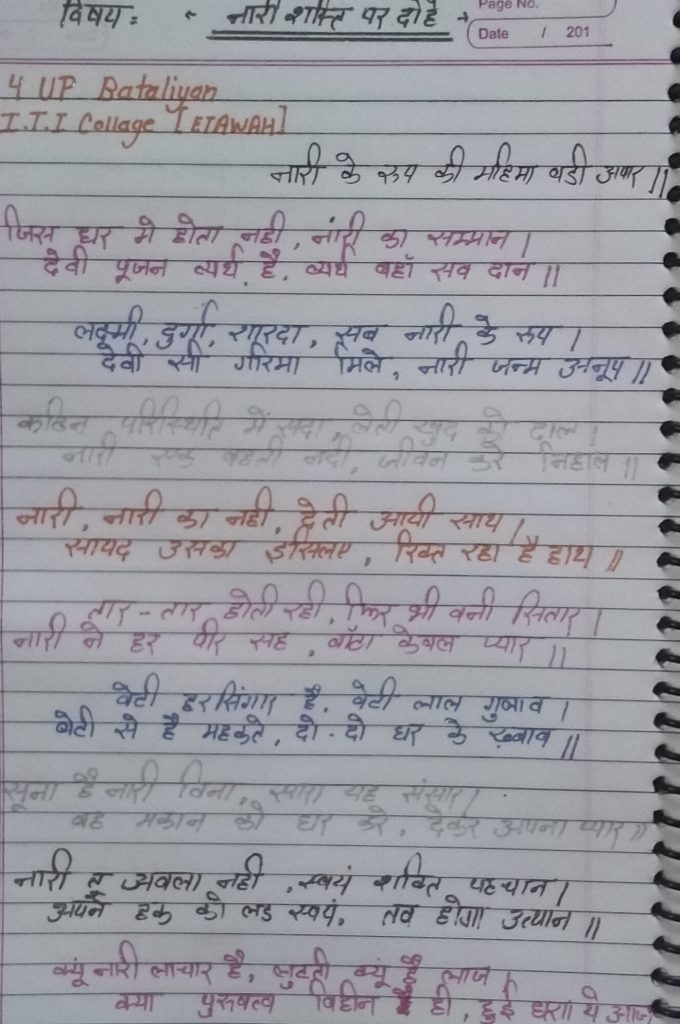 Page No.
विषय: " नारी शक्ति पर दोहे →
Date / 201
4 UP Bataliyan
I.T.I Collage [ETAWAH]
नारी के रुप की महिमा बडी अपार ||
जिस घर मे होता नही, नारी का सम्मान |
देवी पूजन व्यर्थ है, व्यर्थ वहाँ सब दान ||
लक्ष्मी, दुर्गा, शारदा, सब नारी के रुप |
देवी सी गरिमा मिले, नारी जन्म अनूप ||
कठिन परिस्थिति में सदा, लेती खुद को ढाल |
नारी एक बहती नदी, जीवन करे निहाल ||
नारी, नारी का नही, देती आयी साथ |
सायद उसका इसिलए, रिक्त रहा है हाथ ||
तार-तार होती रही, फिर भी बनी सितार |
नारी ने हर पीर सह, बाँटा केवल प्यार ||
बेटी हरसिंगार है, बेटी लाल गुलाब |
बेटी से है महकते, दो-दो घर के ख्वाब ||
सूना है नारी बिना, सारा यह संसार |
वह मकान को घर करे, देकर अपना प्यार ||
नारी तू अबला नही, स्वयं शक्ति पहचान |
अपने हक को लड स्वयं, तब होगा उत्थान ||
क्यूं नारी लाचार है, लुटती क्यूं है लाज |
क्या पुरुषत्व विहीन ही, हुई धरा ये आज